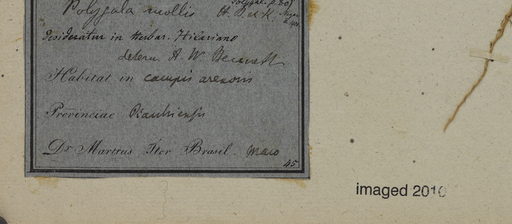 Polygala mollis H.B. & K.
desideratur in Herbar. Hilariano
determ. A. W. Bennett
Habitat in campis arenosis
Provinciae Piauhiensis
Dr Martius Iter Brasil. Majo
45
imaged 2010